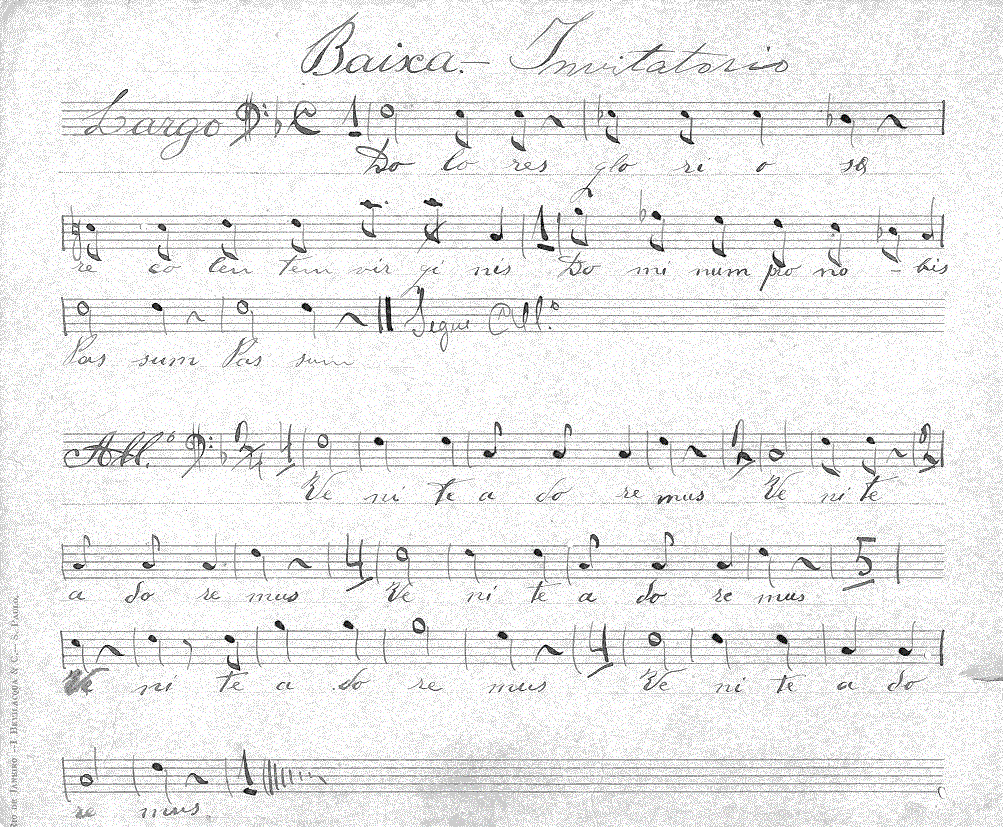 Baixa.— Invitatorio
Largo 1
Do lo res glo ri o sæ
re co len tem vir gi nis Do mi num pro no - bis
1
Pas sum Pas sum
Segue All.º
All.º 2/4 4 2 2
Ve ni te a do re mus Ve ni te
4 5
a do re mus Ve ni te a do re mus
4
Ve ni te a do re mus Ve ni te a do
1
re mus.
Rio de Janeiro —I. Bevilacqua & C.— S. Paulo.